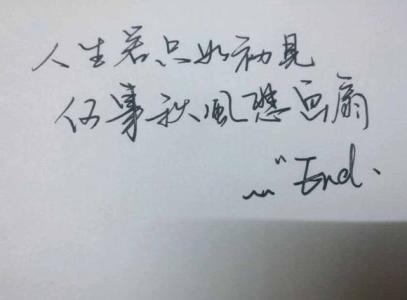 人生若只如初見
何事秋風悲画扇
..."End.